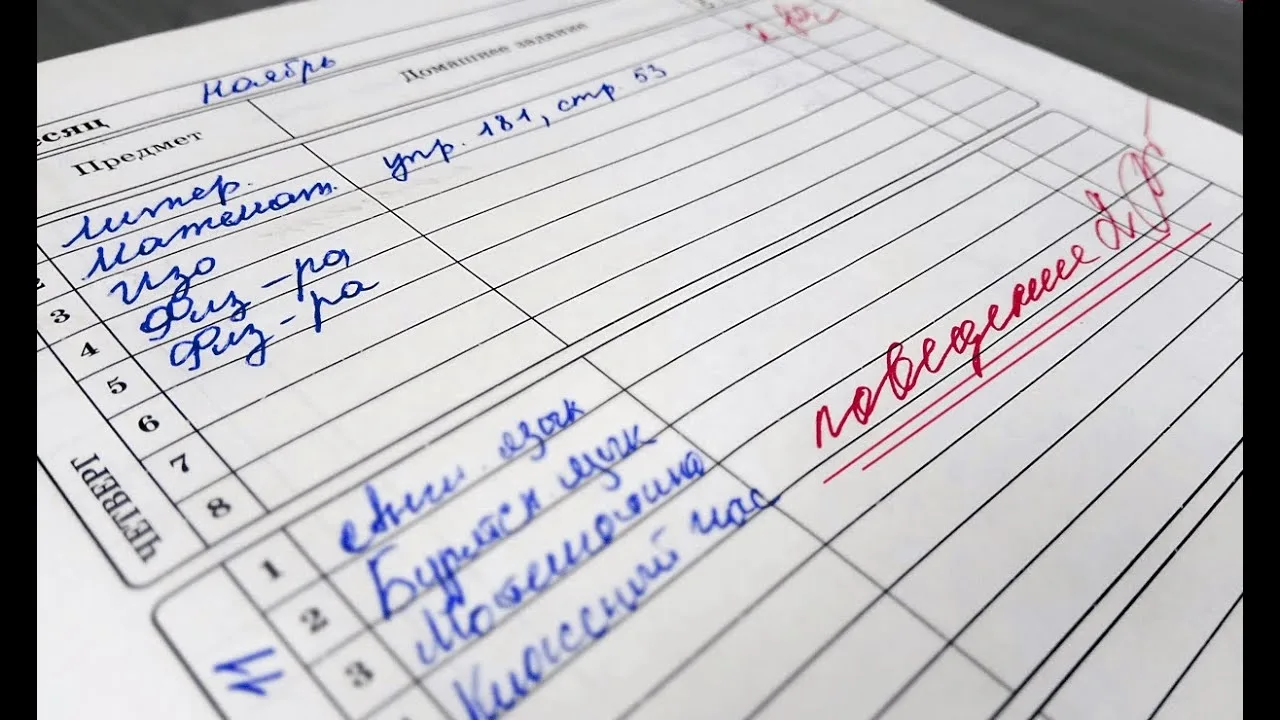 Ноябрь
есяц
Предмет
Домашнее задание
Литер.
Математ. упр. 181, стр. 53
3 Изо
4 Физ-ра
5 Физ-ра
6
7
8
ЧЕТВЕРГ
поведение 2
1 Англ. язык
2 Бурятск. язык
3 Математика
Классный час
11